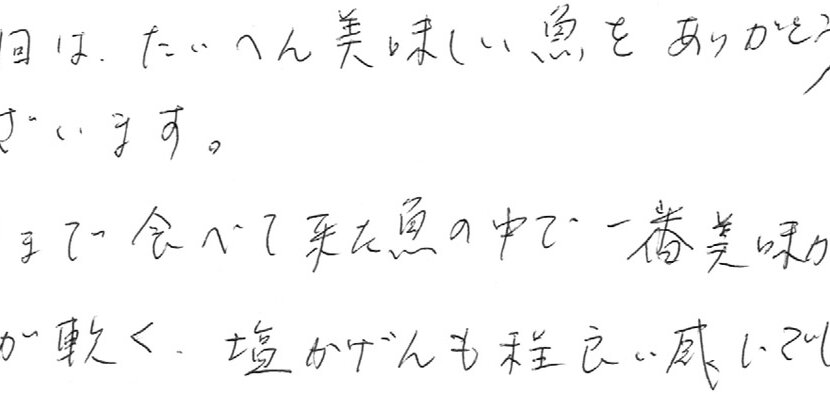 回は、たいへん美味しい魚をありがとう
ざいます。
まで食べて来た魚の中で一番美味か
が軟く、塩かげんも程良い感じでし